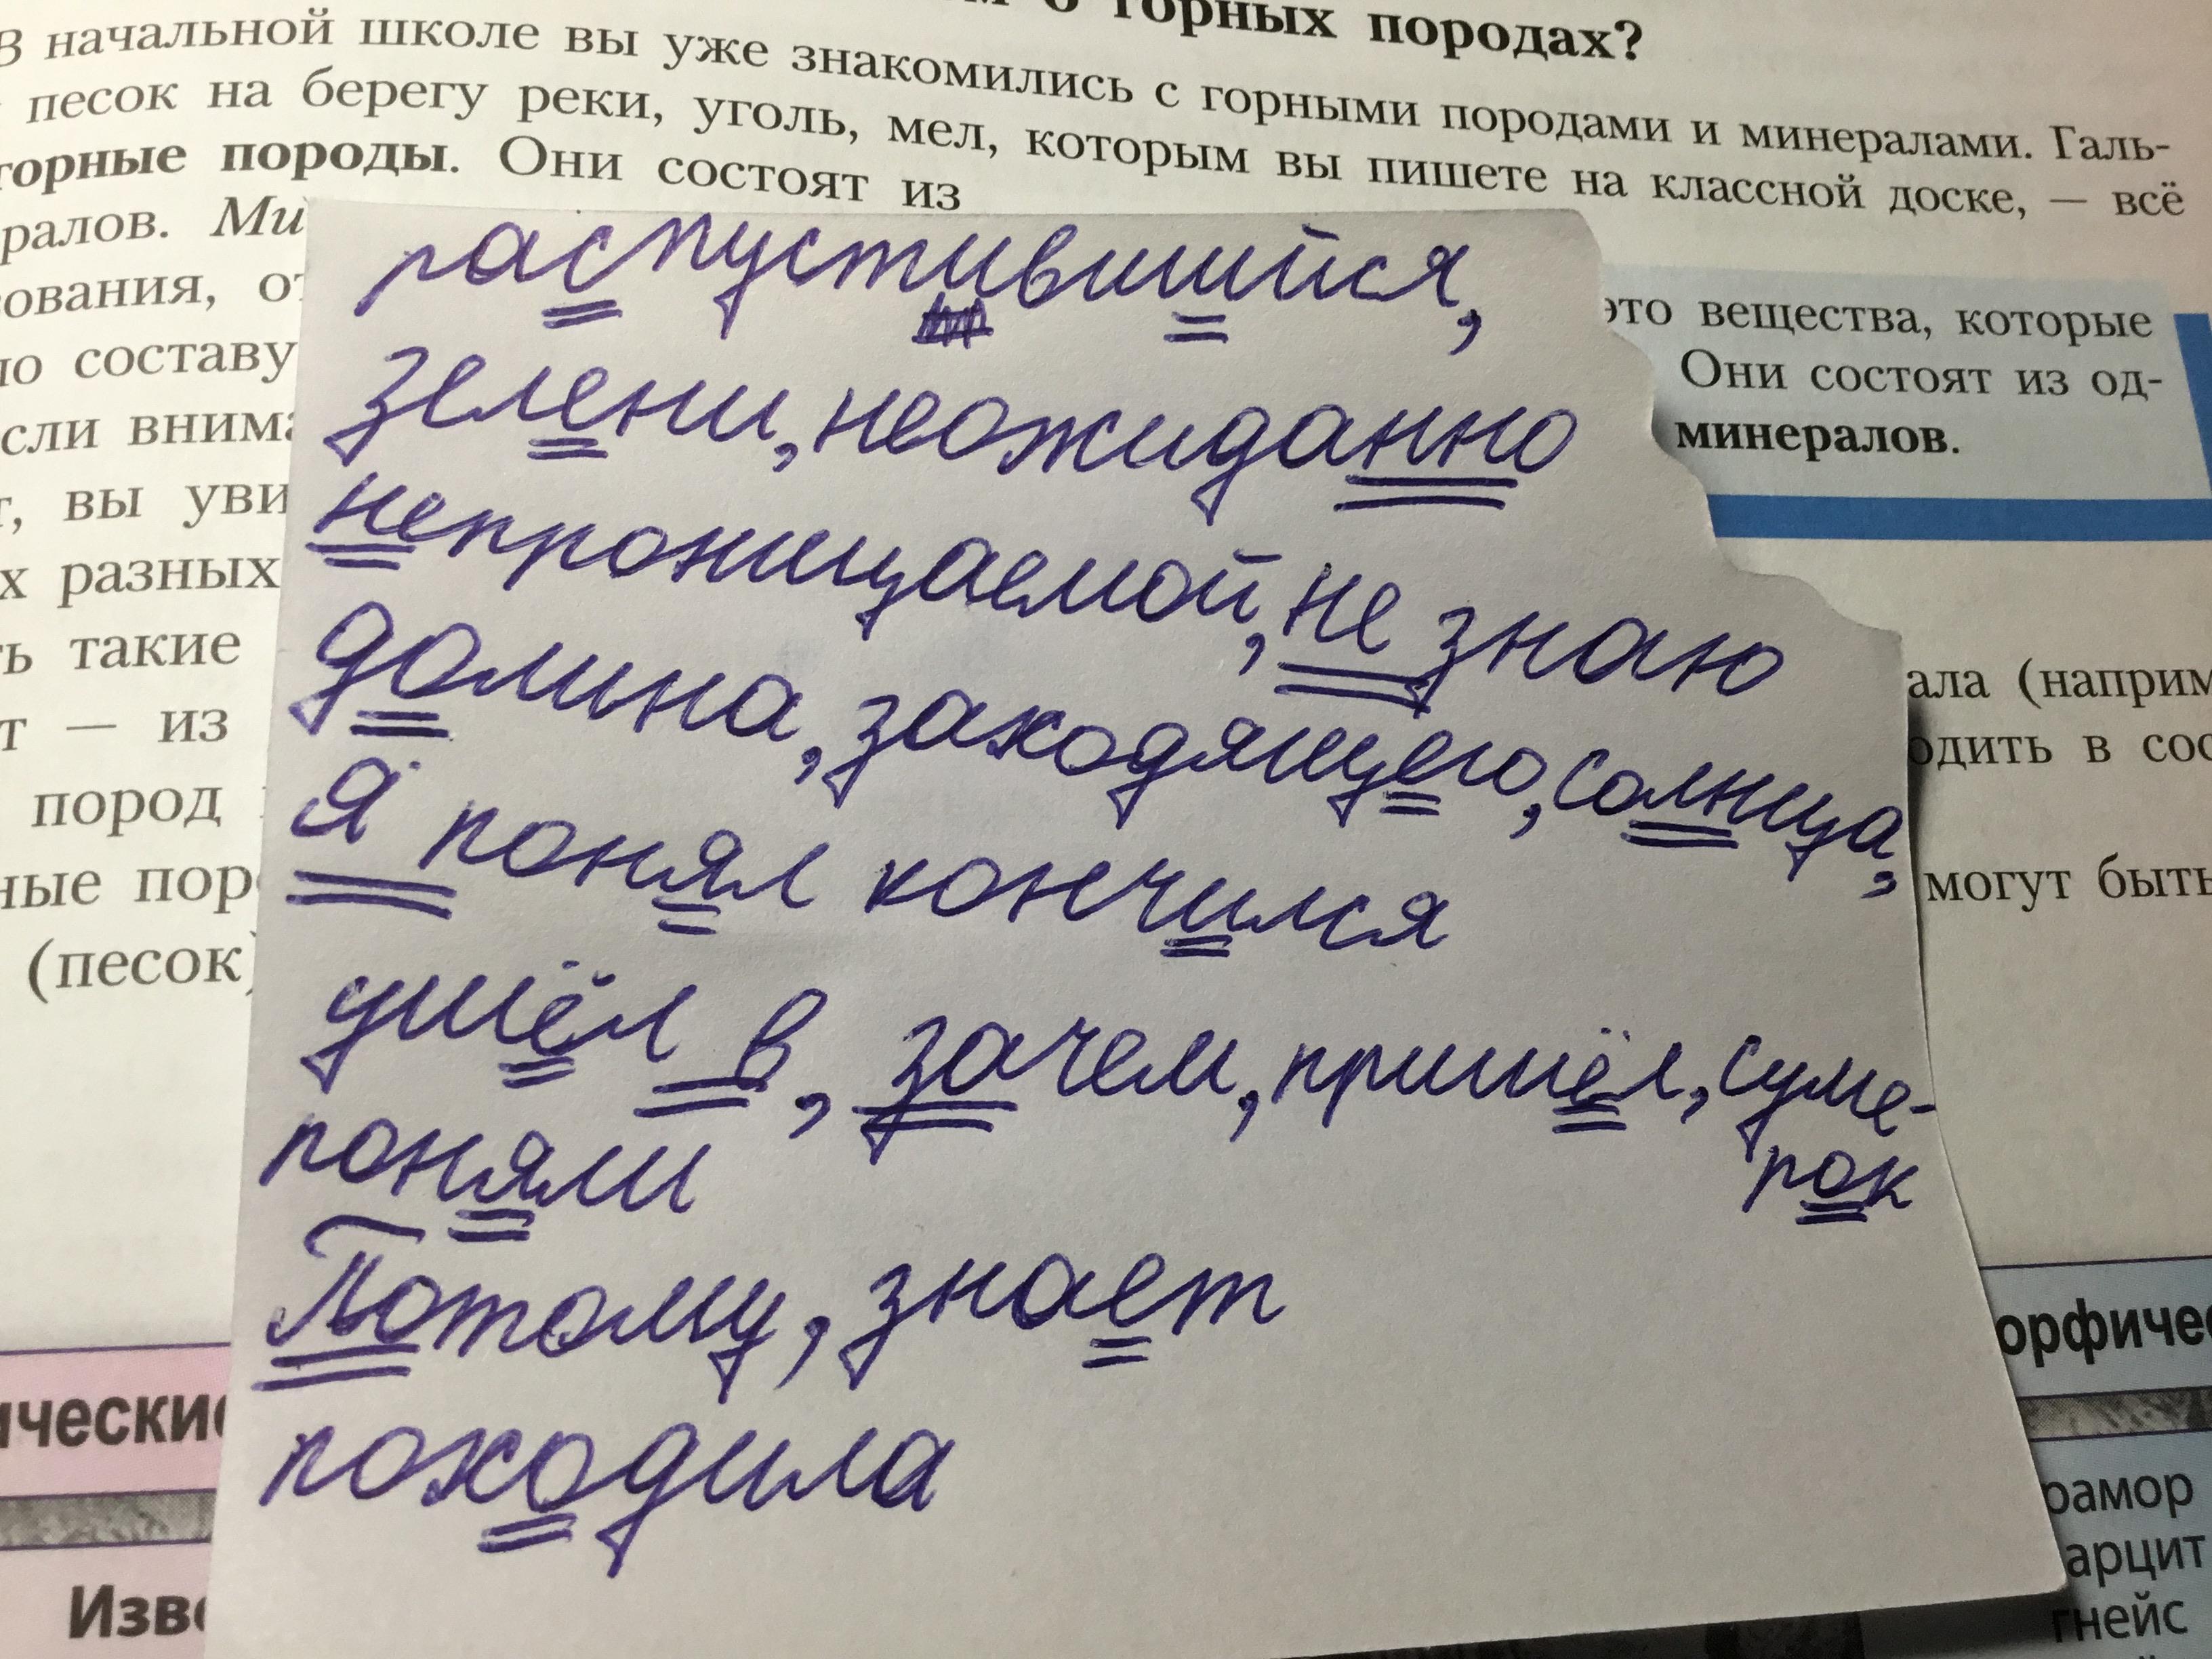 о горных породах?
В начальной школе вы уже знакомились с горными породами и минералами. Галь-
песок на берегу реки, уголь, мел, которым вы пишете на классной доске, — всё
горные породы. Они состоят из
ралов. Ми
ования, от
это вещества, которые
по составу
Они состоят из од-
сли внима
минералов.
т, вы уви
х разных
ть такие
ала (наприм
т — из
одить в сос
пород
ные поро
могут быть
(песок)
распустившийся,
зелени, неожиданно
непроницаемой, не знаю
долина, заходящего, солнца,
Я понял кончился
ушёл в, зачем, пришёл, суме-
рок
поняли
Потому, знает
походила
ические
орфичес
Изве
рамор
арцит
гнейс